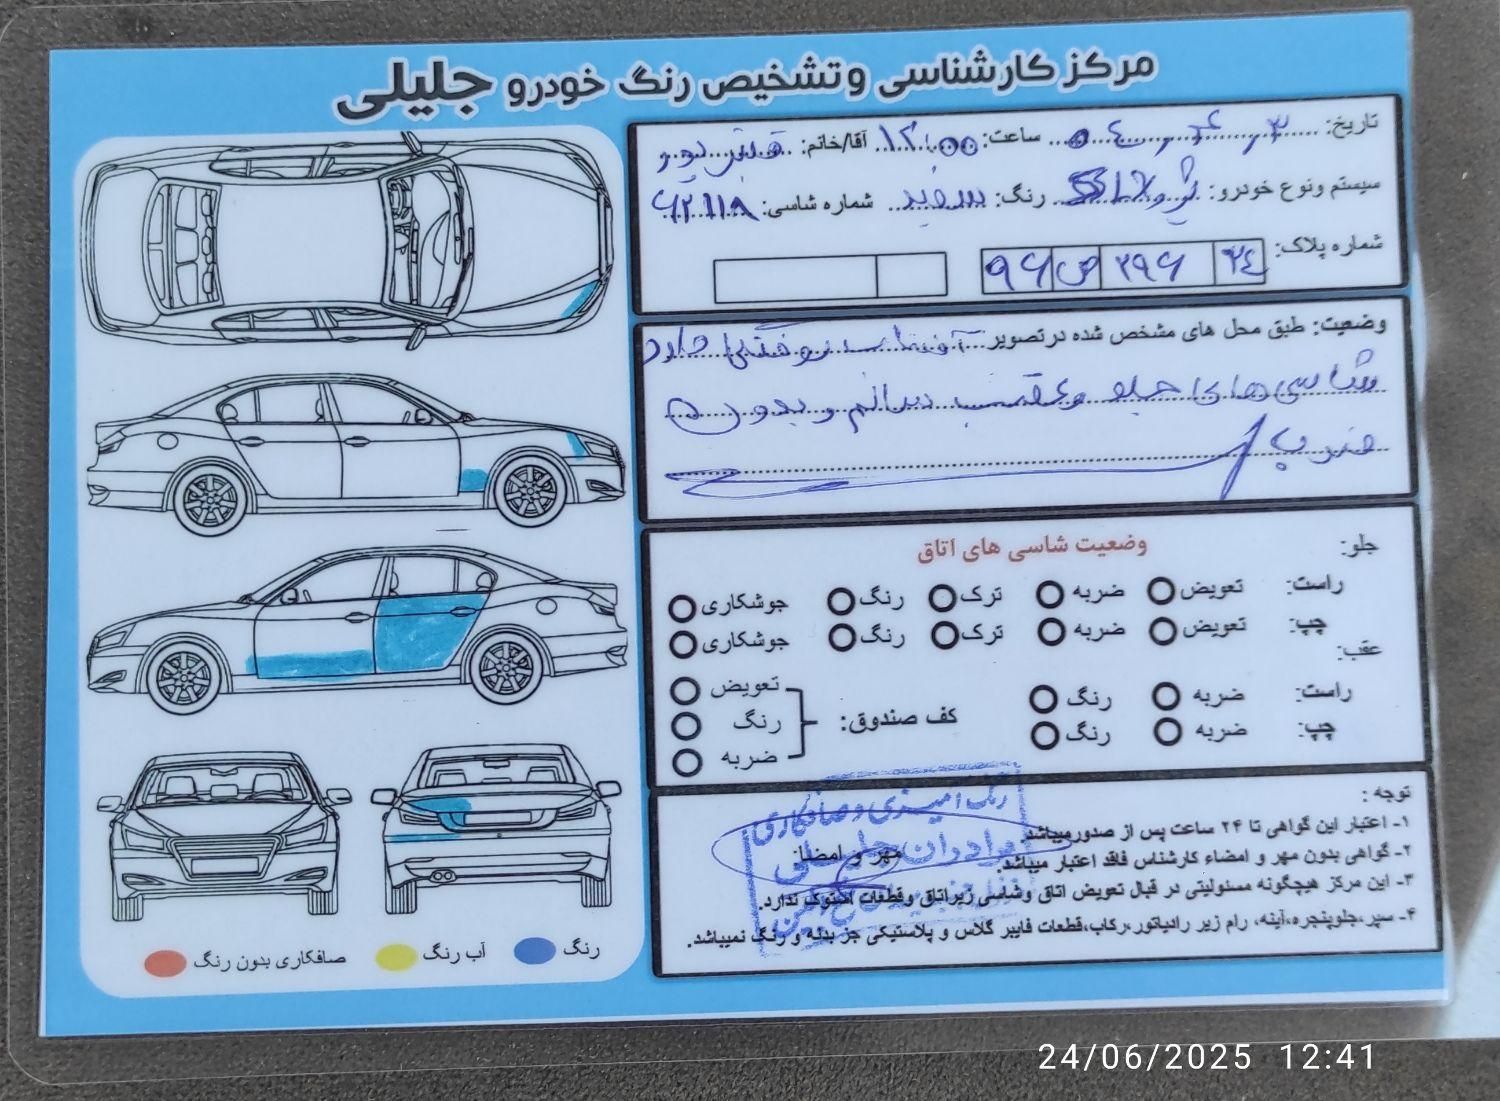 مرکز کارشناسی و تشخیص رنگ خودرو جلیلی
تاریخ: ۰۴,۴,۳ ساعت: ۱۲:۰۰ آقا/خانم: قنبرپور
سیستم ونوع خودرو: پژو SLX رنگ: سفید شماره شاسی:
شماره پلاک: ۲۴ ۲۹۶ ص ۹۶
وضعیت: طبق محل های مشخص شده در تصویر آفتاب سوختگی دارد
شاسی های جلو و عقب سالم و بدون
ضربه
وضعیت شاسی های اتاق
جلو:
راست: تعویض ضربه ترک رنگ جوشکاری
چپ: تعویض ضربه ترک رنگ جوشکاری
عقب:
راست: ضربه رنگ
چپ: ضربه رنگ
کف صندوق: تعویض
رنگ
ضربه
توجه :
۱- اعتبار این گواهی تا ۲۴ ساعت پس از صدور میباشد
۲- گواهی بدون مهر و امضاء کارشناس فاقد اعتبار میباشد.
مهر و امضا:
۳- این مرکز هیچگونه مسئولیتی در قبال تعویض اتاق وشاسی زیراتاق وقطعات استوک ندارد.
۴- سپر،جلوپنجره،آینه، رام زیر رادیاتور،رکاب،قطعات فایبر گلاس و پلاستیکی جز بدنه و رنگ نمیباشد.
رنگ آمیزی و صافکاری
برادران جلیلی
رنگ آب رنگ صافکاری بدون رنگ
24/06/2025 12:41